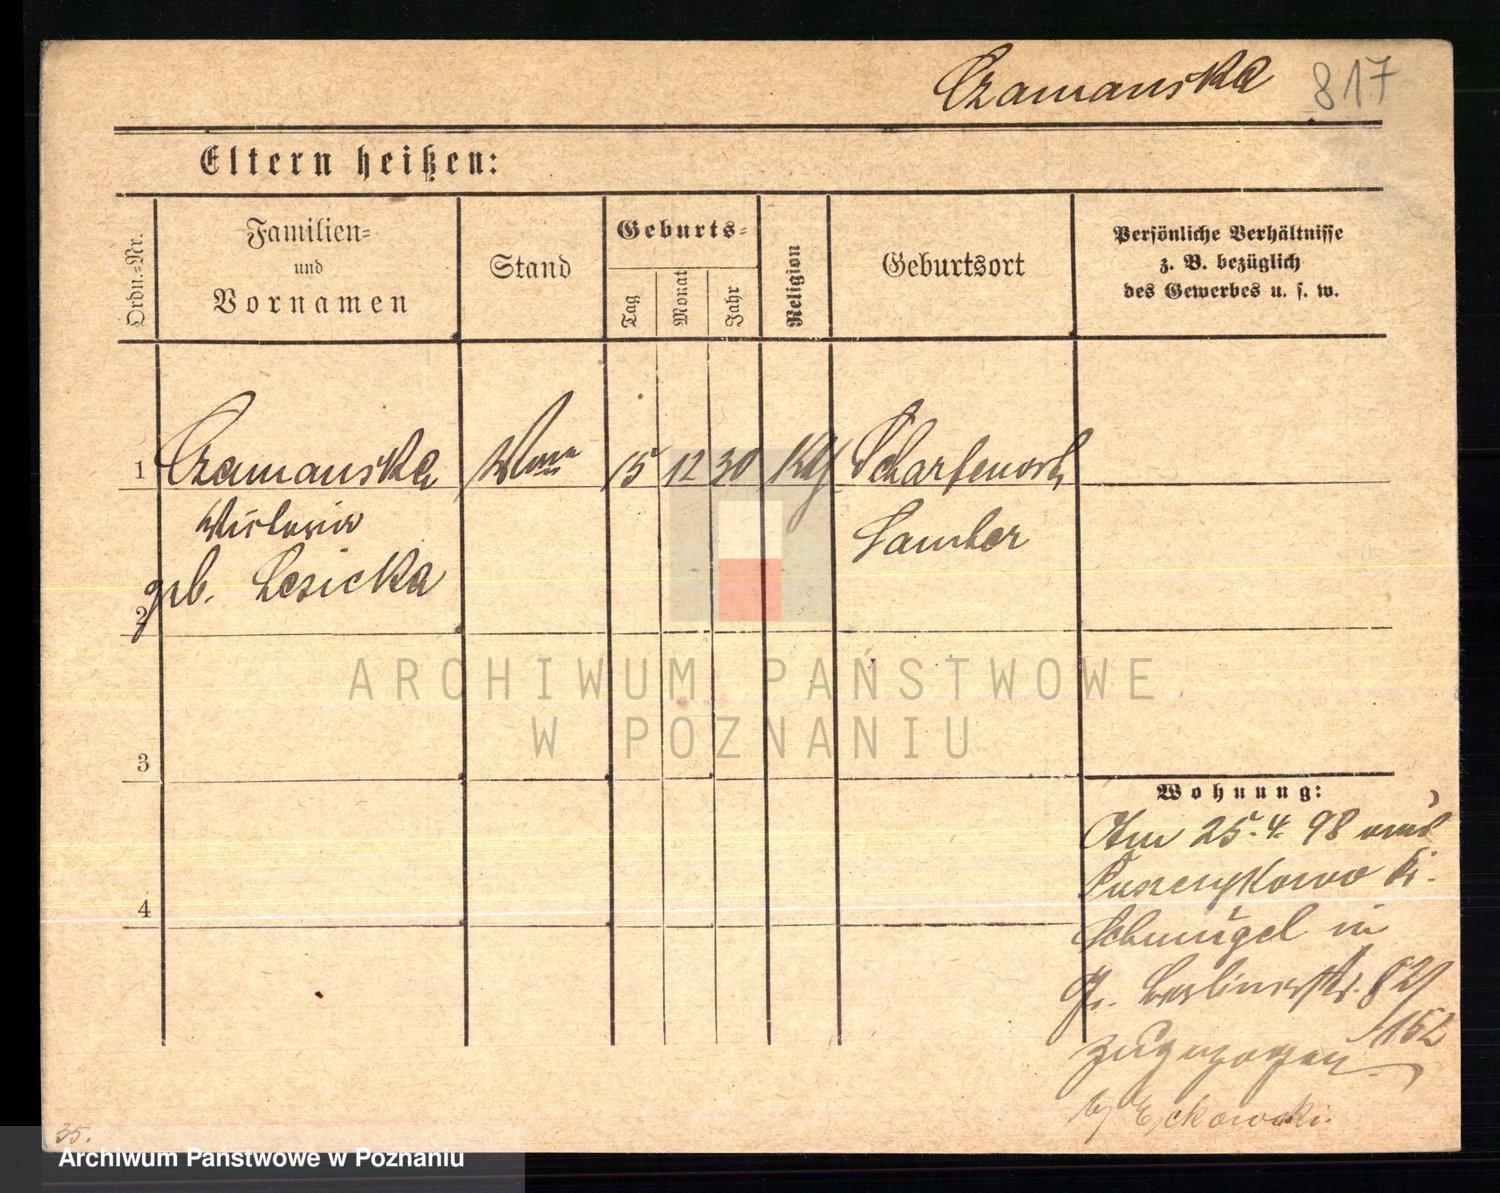 Czamanska 817
Eltern heißen:
Ordn.-Nr.
Familien-
und
Vornamen
Stand
Geburts-
Tag
Monat
Jahr
Religion
Geburtsort
Persönliche Verhältnisse
z. B. bezüglich
des Gewerbes u. s. w.
1 Czamanska 15 12 30 Kth Scharfenort
Victoria Samter
geb. Lesicka
2
ARCHIWUM PAŃSTWOWE
W POZNANIU
3
4
Wohnung:
Am 25.4.98 aus
Puszczykowo Kr.
Schmiegel in
Gr. Berlinerstr. 82/
152
zugezogen
by Eckowski.
35.
Archiwum Państwowe w Poznaniu